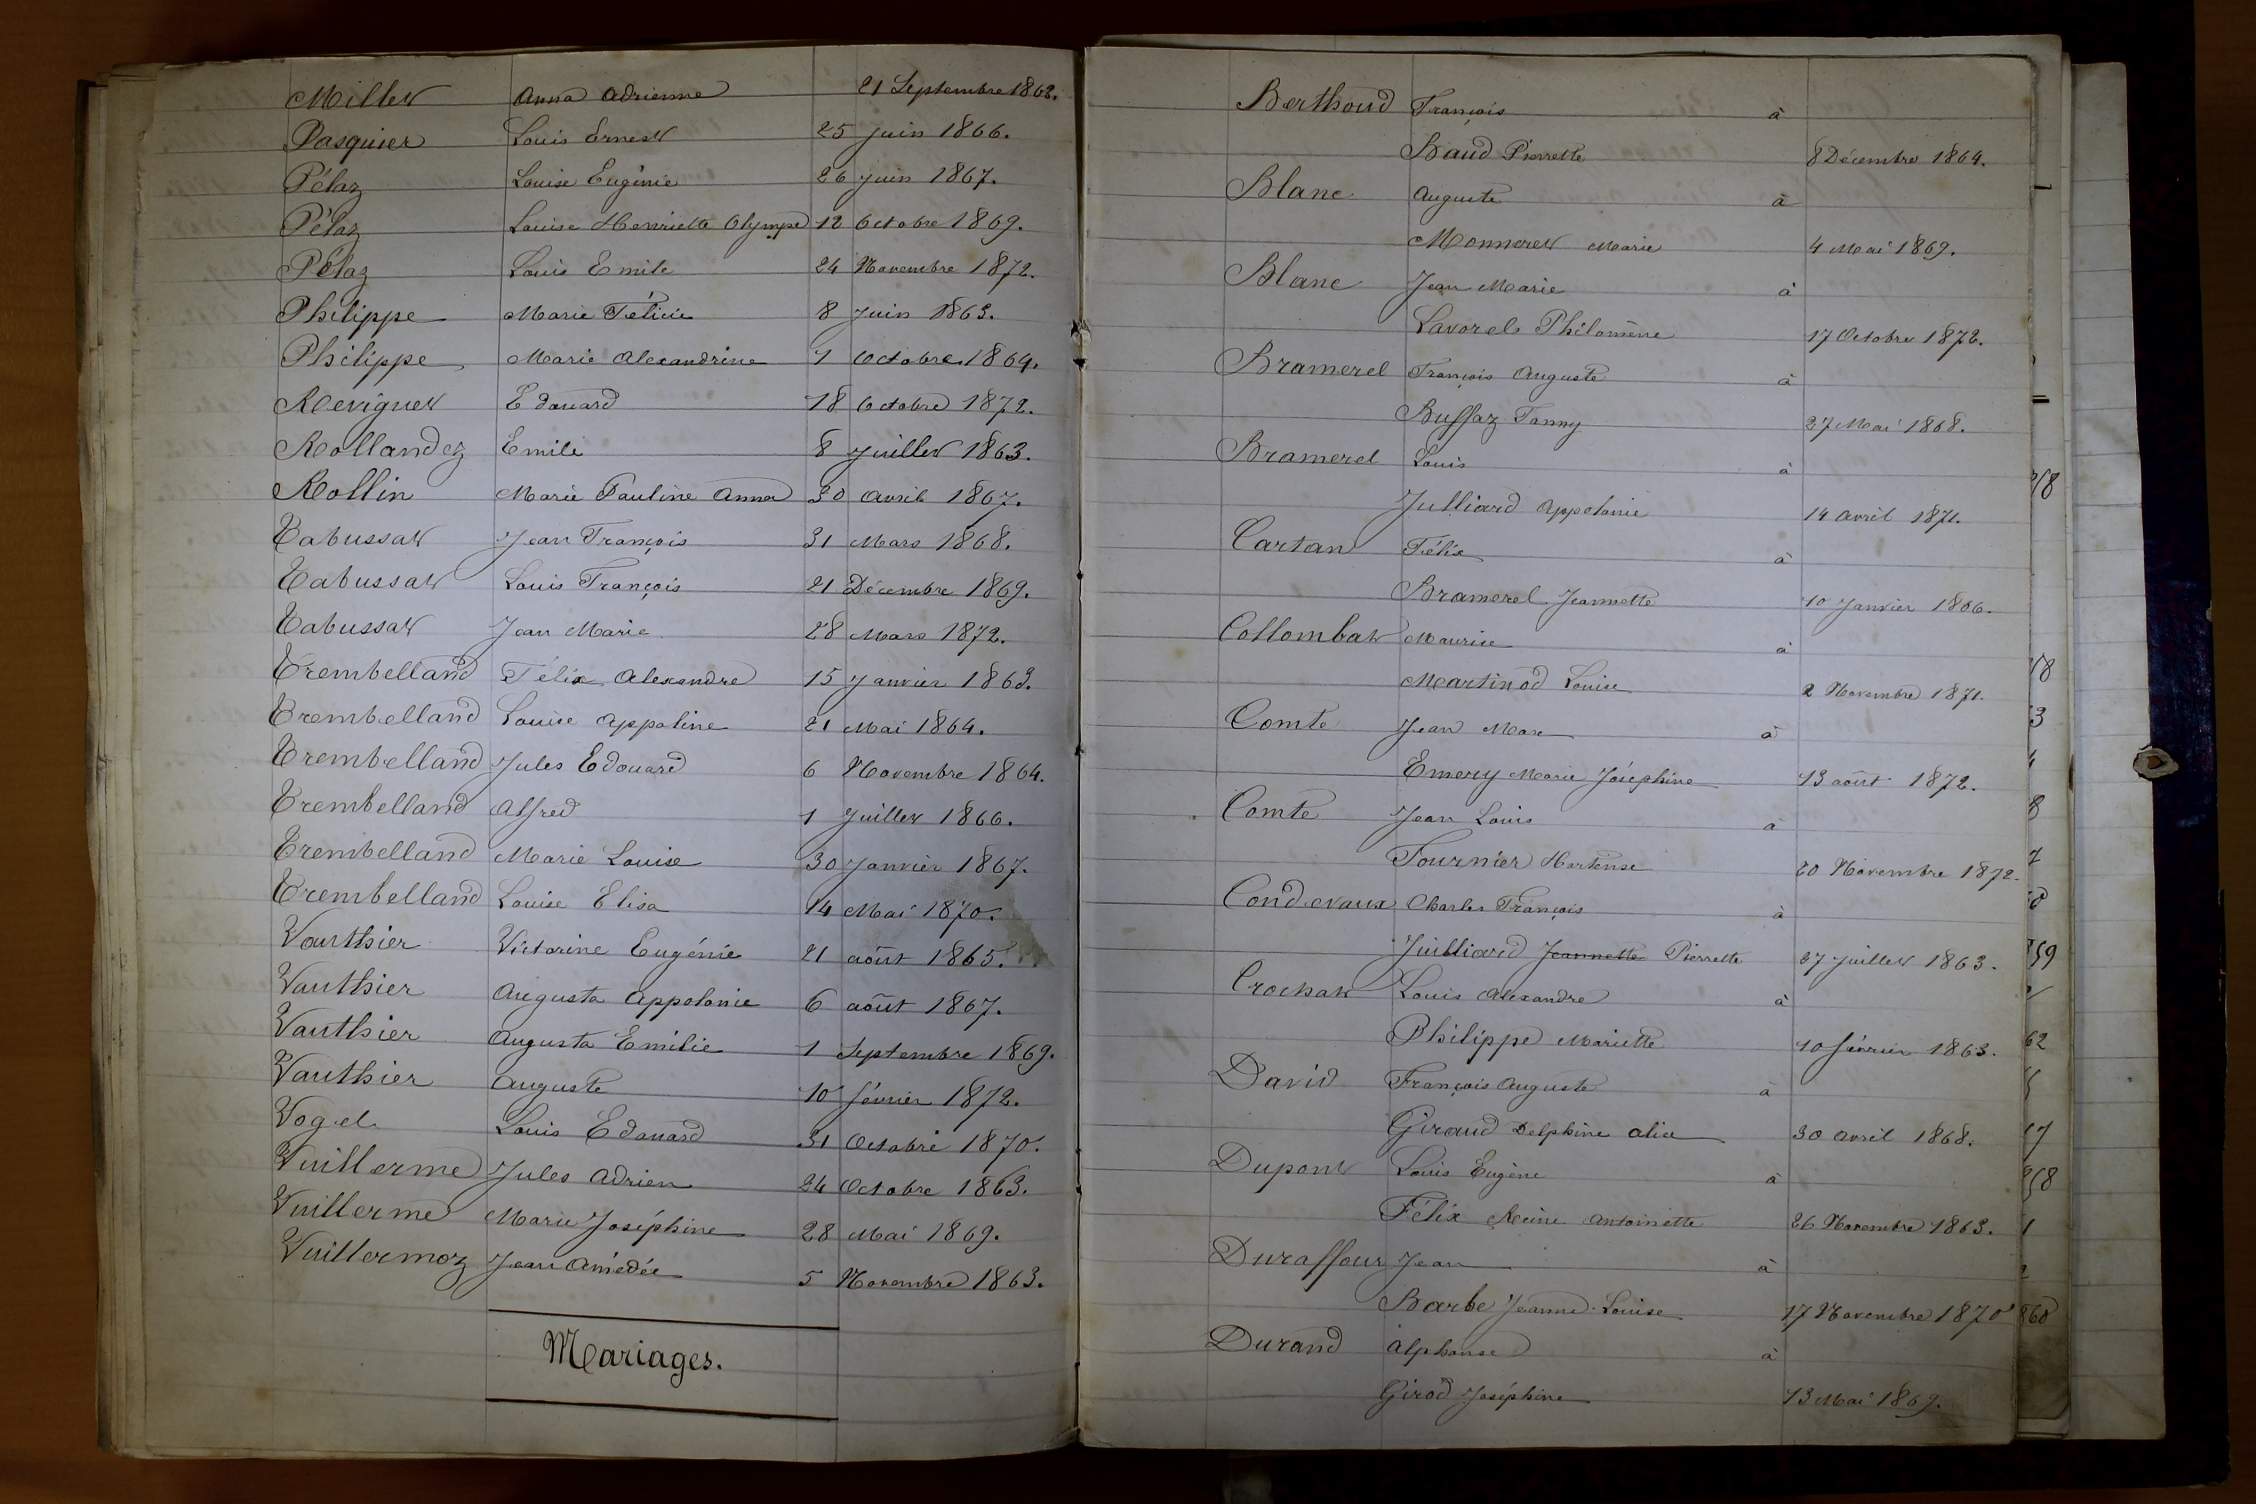 Millet Anna Adrienne 21 Septembre 1862.
Pasquier Louis Ernest 25 Juin 1866.
Pélaz Louise Eugénie 26 Juin 1867.
Pélaz Louise Henriette Olympe 12 Octobre 1869.
Pélaz Louis Emile 24 Novembre 1872.
Philippe Marie Félicie 8 Juin 1863.
Philippe Marie Alexandrine 1 Octobre 1864.
Revignet Edouard 18 Octobre 1872.
Rollandez Emile 8 Juillet 1863.
Rollin Marie Pauline Anna 30 Avril 1867.
Tabussat Jean François 31 Mars 1868.
Tabussat Louis François 21 Décembre 1869.
Tabussat Jean Marie 28 Mars 1872.
Trembelland Félix Alexandre 15 Janvier 1863.
Trembelland Louise Appoline 21 Mai 1864.
Trembelland Jules Edouard 6 Novembre 1864.
Trembelland Alfred 1 Juillet 1866.
Trembelland Marie Louise 30 Janvier 1867.
Trembelland Louise Elisa 14 Mai 1870.
Vauthier Victorine Eugénie 21 août 1865.
Vauthier Augusta Appolonie 6 août 1867.
Vauthier Augusta Emilie 1 Septembre 1869.
Vauthier Auguste 10 février 1872.
Vogel Louis Edouard 31 Octobre 1870.
Vuillerme Jules Adrien 24 Octobre 1863.
Vuillerme Marie Joséphine 28 Mai 1869.
Vuillermoz Jean Amédée 5 Novembre 1863.
Mariages.
Berthoud François à
Baud Pierrette 8 Décembre 1864.
Blanc Auguste à
Monneret Marie 4 Mai 1869.
Blanc Jean Marie à
Lavorel Philomène 17 Octobre 1872.
Bramerel François Auguste à
Buffaz Fanny 27 Mai 1868.
Bramerel Louis à
Julliard Appolonie 14 Avril 1871.
Cartan Félix à
Bramerel Jeannette 10 Janvier 1866.
Collombat Maurice à
Martinod Louise 2 Novembre 1871.
Comte Jean Marc à
Emery Marie Joséphine 13 août 1872.
Comte Jean Louis à
Fournier Hortense 20 Novembre 1872.
Condevaux Charles François à
Juilliard Jeannette Pierrette 27 Juillet 1863.
Crochat Louis Alexandre à
Philippe Mariette 10 février 1863.
David François Auguste à
Giraud Delphine Alix 30 avril 1868.
Dupont Louis Eugène à
Félix Reine Antoinette 26 Novembre 1863.
Duraffour Jean à
Barbe Jeanne Louise 17 Novembre 1870
Durand Alphonse à
Girod Joséphine 13 Mai 1869.